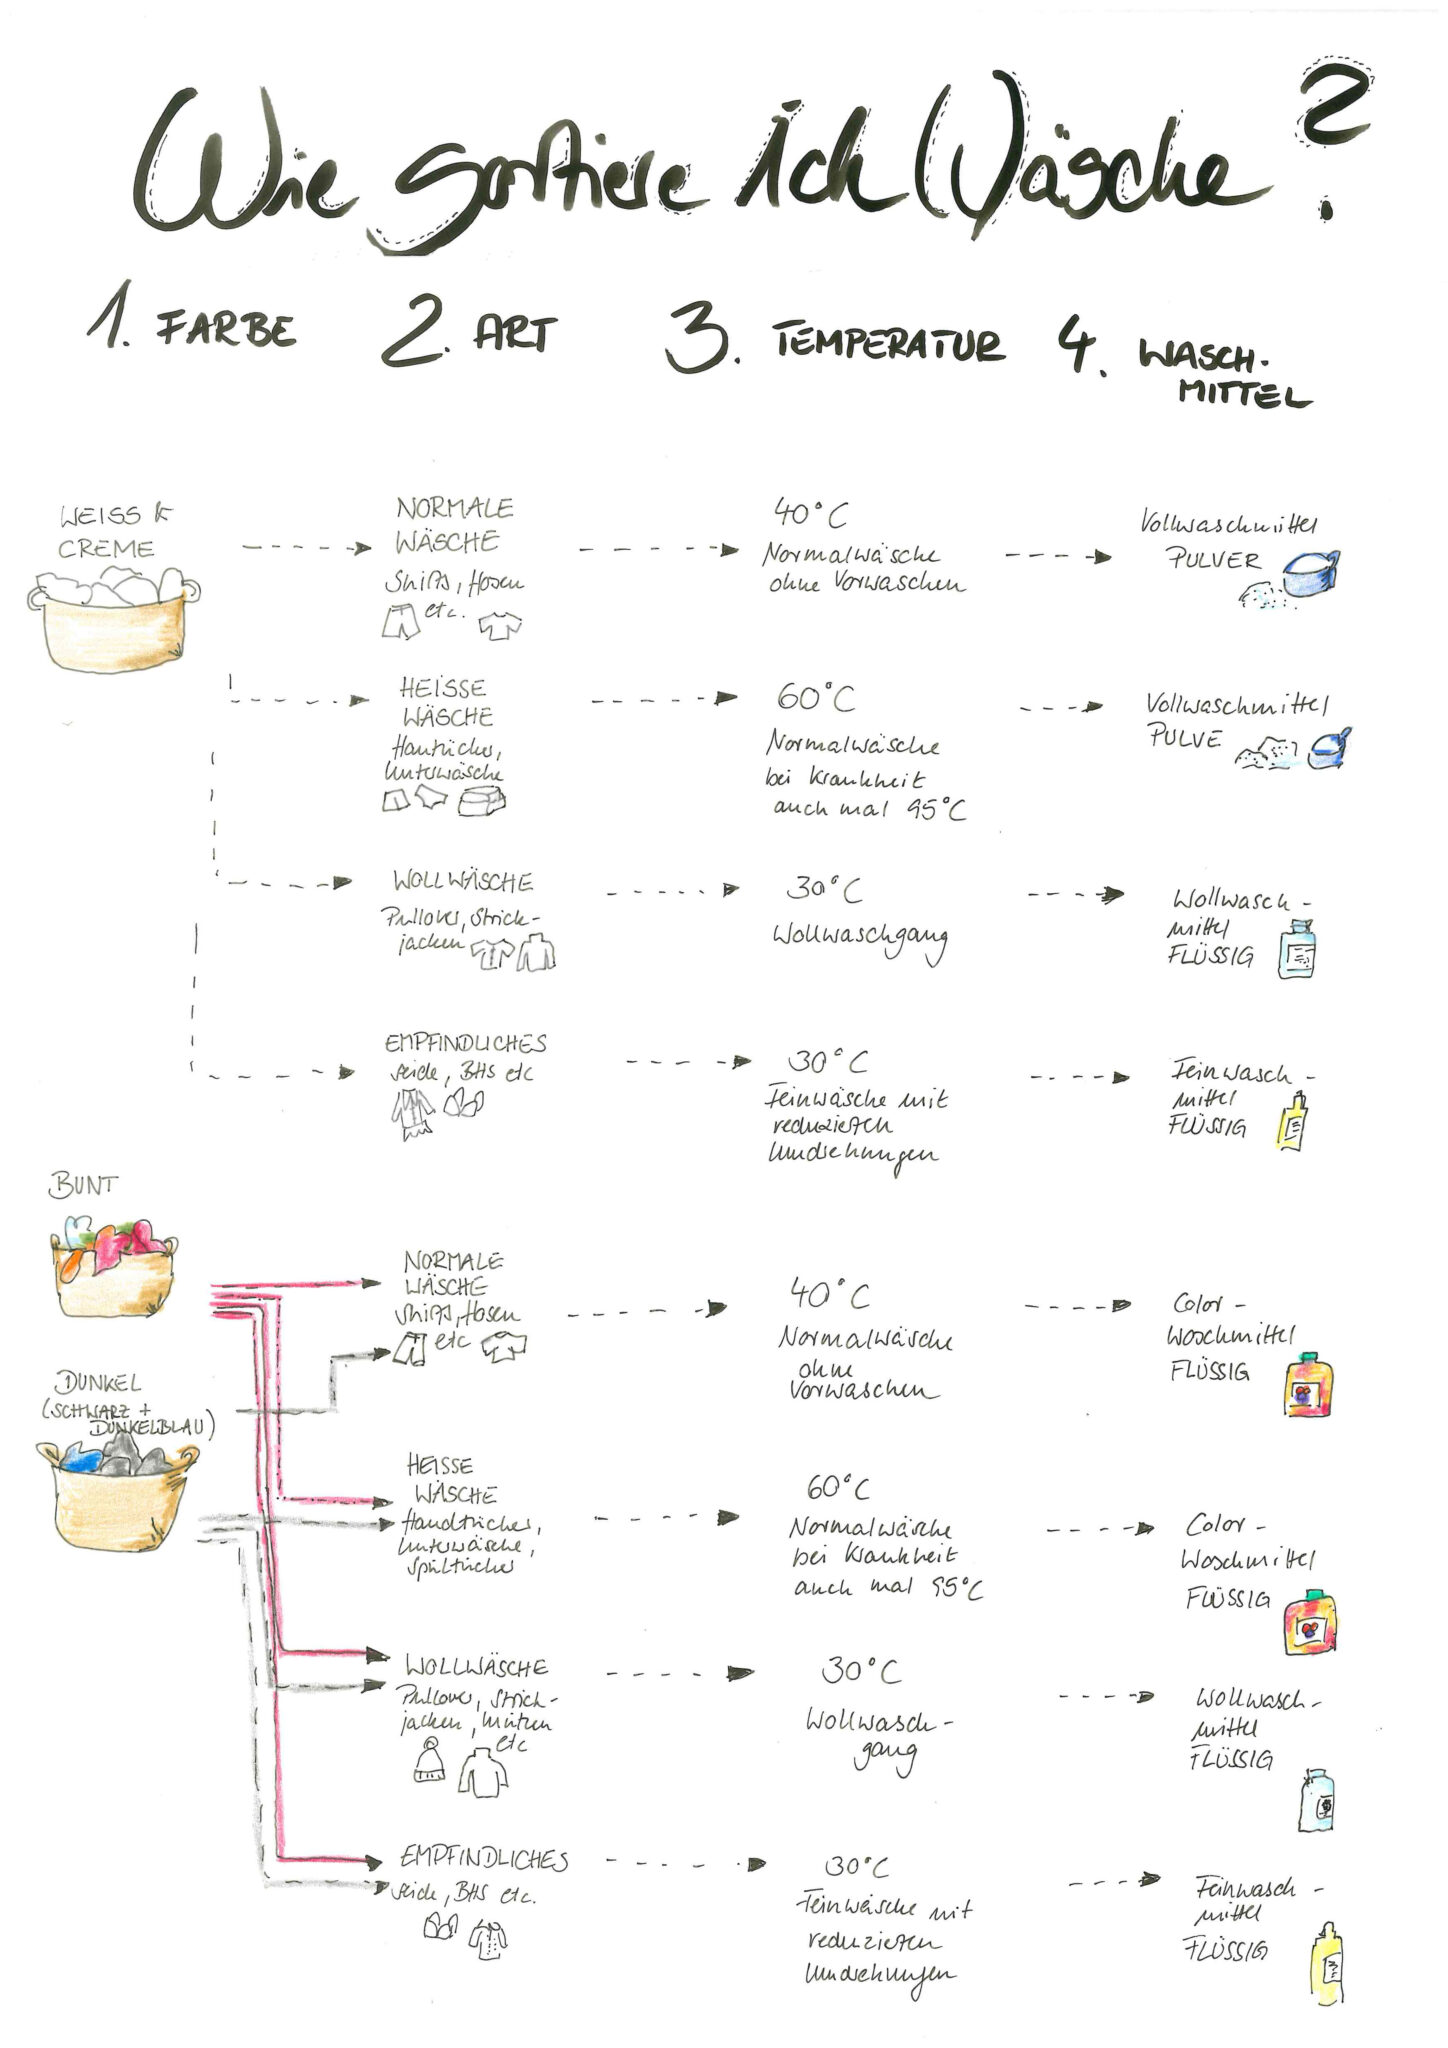 Wie sortiere ich Wäsche?
1. FARBE
2. ART
3. TEMPERATUR
4. WASCH-
MITTEL
WEISS &
CREME
NORMALE
WÄSCHE
Shirts, Hosen
etc.
40°C
Normalwäsche
ohne Vorwaschen
Vollwaschmittel
PULVER
HEISSE
WÄSCHE
Hantücher,
Unterwäsche
60°C
Normalwäsche
bei Krankheit
auch mal 95°C
Vollwaschmittel
PULVE
WOLLWÄSCHE
Pullover, Strick-
jacken
30°C
Wollwaschgang
Wollwasch-
mittel
FLÜSSIG
EMPFINDLICHES
Seide, BHS etc
30°C
Feinwäsche mit
reduzierten
Umdrehungen
Feinwasch-
mittel
FLÜSSIG
BUNT
DUNKEL
(SCHWARZ +
DUNKELBLAU)
NORMALE
WÄSCHE
Shirts, Hosen
etc
40°C
Normalwäsche
ohne
Vorwaschen
Color-
Waschmittel
FLÜSSIG
HEISSE
WÄSCHE
Handtücher,
Unterwäsche,
Spültücher
60°C
Normalwäsche
bei Krankheit
auch mal 95°C
Color-
Waschmittel
FLÜSSIG
WOLLWÄSCHE
Pullover, Strick-
jacken, Mützen
etc
30°C
Wollwasch-
gang
Wollwasch-
mittel
FLÜSSIG
EMPFINDLICHES
Seide, BHS etc.
30°C
Feinwäsche mit
reduzierten
Umdrehungen
Feinwasch-
mittel
FLÜSSIG